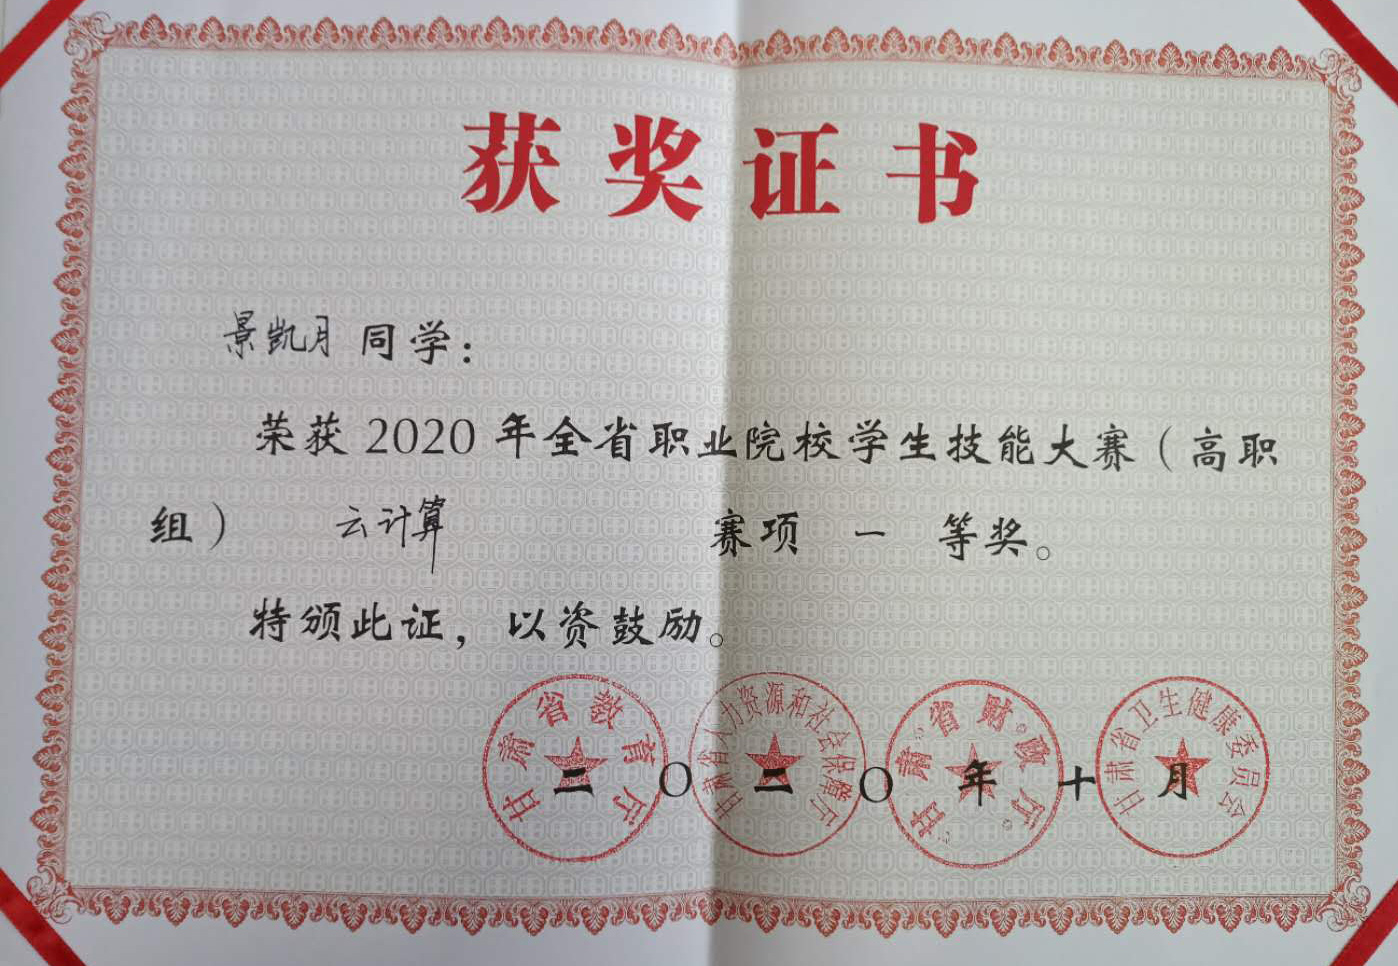 获奖证书
景凯月 同学：
荣获 2020 年全省职业院校学生技能大赛（高职
组） 云计算 赛项 一 等奖。
特颁此证，以资鼓励。
甘肃省教育厅
甘肃省人力资源和社会保障厅
甘肃省财政厅
甘肃省卫生健康委员会
二〇二〇年十月